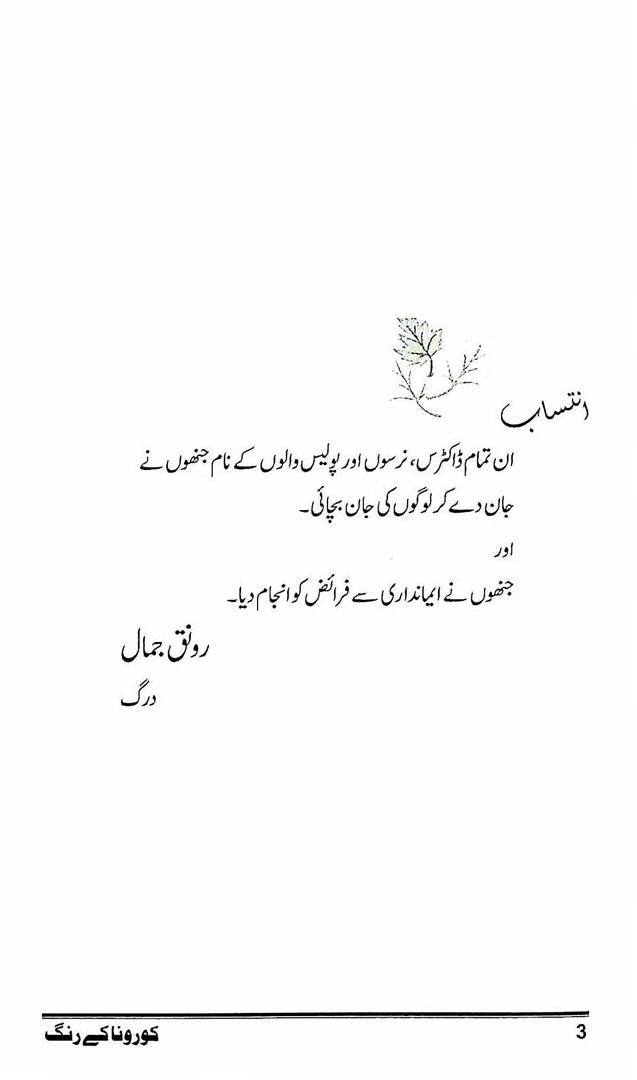 انتساب
ان تمام ڈاکٹرس، نرسوں اور پولیس والوں کے نام جنھوں نے
جان دے کر لوگوں کی جان بچائی۔
اور
جنھوں نے ایمانداری سے فرائض کو انجام دیا۔
رونق جمال
درگ
کورونا کے رنگ
3